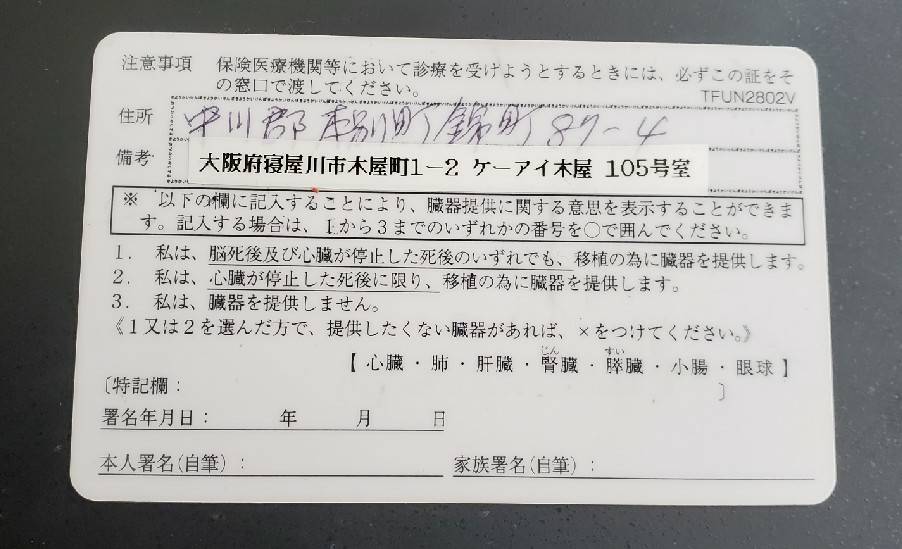 注意事項 保険医療機関等において診療を受けようとするときには、必ずこの証をそ
の窓口で渡してください。
TFUN2802V
住所 中川郡幕別町錦町87-4
備考
大阪府寝屋川市木屋町1-2 ケーアイ木屋 105号室
※ 以下の欄に記入することにより、臓器提供に関する意思を表示することができま
す。記入する場合は、1から3までのいずれかの番号を○で囲んでください。
1. 私は、脳死後及び心臓が停止した死後のいずれでも、移植の為に臓器を提供します。
2. 私は、心臓が停止した死後に限り、移植の為に臓器を提供します。
3. 私は、臓器を提供しません。
《1又は2を選んだ方で、提供したくない臓器があれば、×をつけてください。》
じん すい
【心臓・肺・肝臓・腎臓・膵臓・小腸・眼球】
〔特記欄: 〕
署名年月日: 年 月 日
本人署名(自筆): 家族署名(自筆):